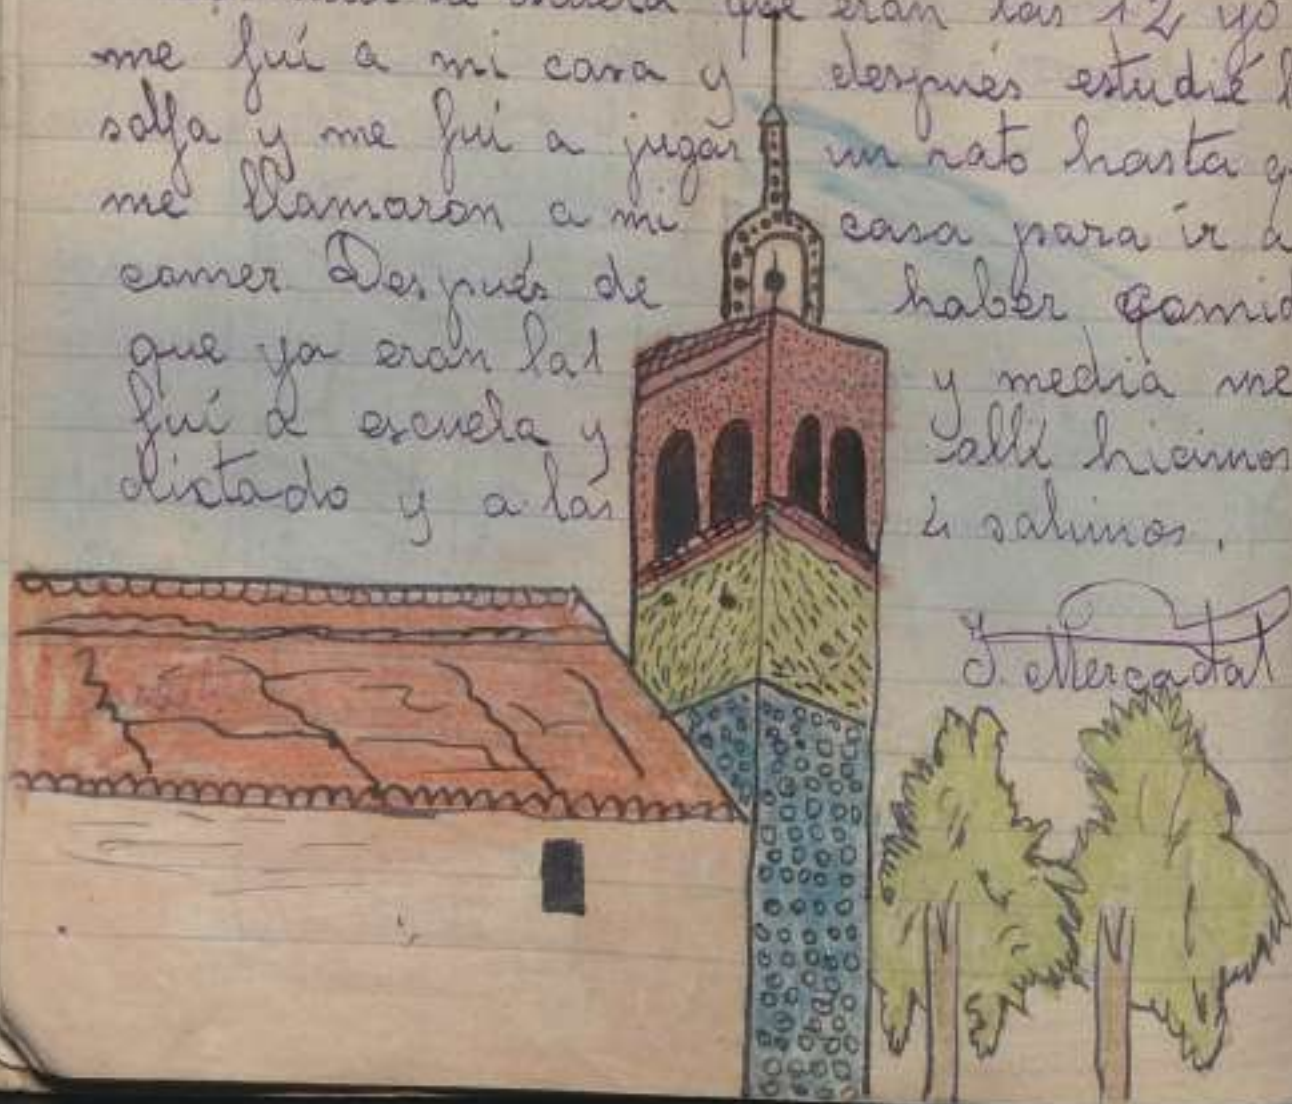 que eran las 12 yo
me fuí a mi casa y después estudié l
solfa y me fuí a jugar un rato hasta q
me llamaron a mi casa para ir a
comer Después de haber comid
que ya eran la 1 y media me
fuí a escuela y allí hicimos
dictado y a las 4 salimos.
J. Mercadal